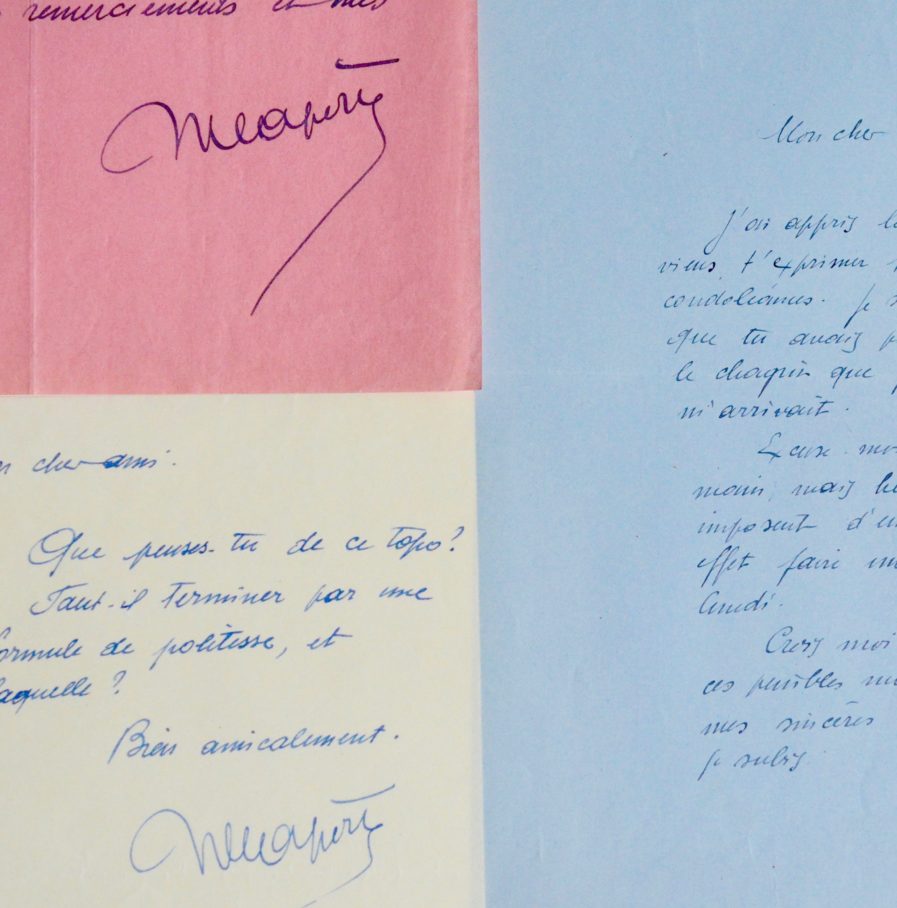 remerciements et mes
cher ami.
Que penses-tu de ce topo?
Faut-il terminer par une
formule de politesse, et
laquelle?
Bien amicalement.
Mon cher
J'ai appris
viens t'exprimer
condoléances. Je
que tu avais
le chagrin que
m'arrivait.
Excuse
main, mais
imposent
effet faire
lundi.
Crois moi
ces pénibles
mes sincères
je subis